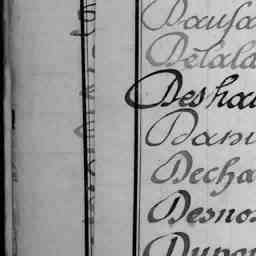 Dausa
Delala
Deshau
Dani
Decha
Desnos
Dupon